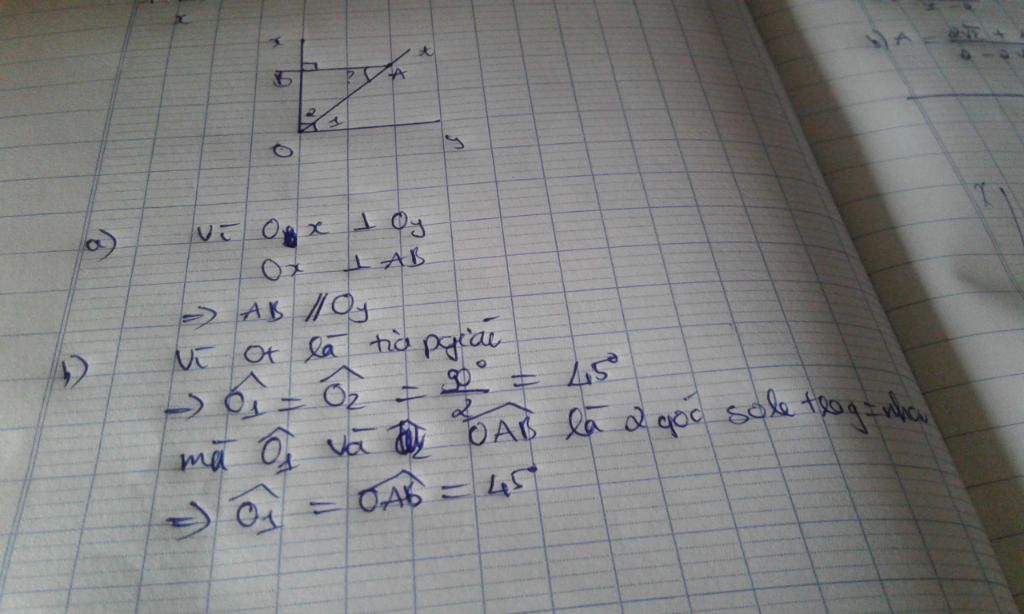 x
x
B
?
A
t
2
1
O
y
a) Vì Ox ⊥ Oy
Ox ⊥ AB
=> AB // Oy
b) Vì Ot là tia pgiác
=> Ô1 = Ô2 = 90°/2 = 45°
mà Ô1 và OAB là 2 góc sole trog = nhau
=> Ô1 = OAB = 45°
b) A =